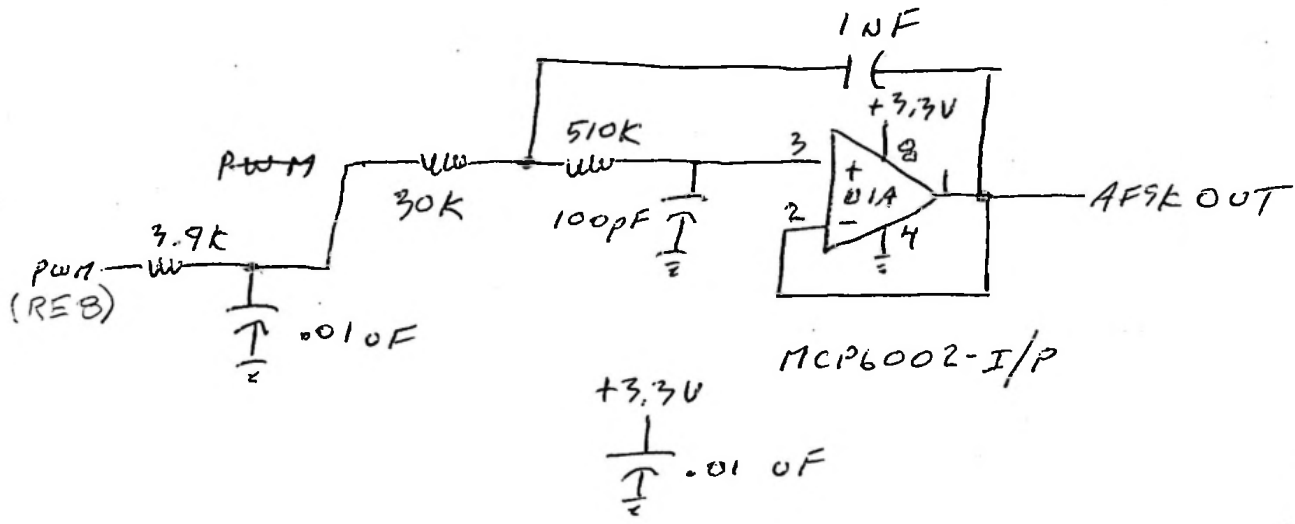 1 NF
+3.3V
510K
3
8
PWM
+
U1A
1
AFSK OUT
30K
100pF
2
-
4
3.9K
PWM
(RE8)
.01 UF
MCP6002-I/P
+3.3V
.01 UF